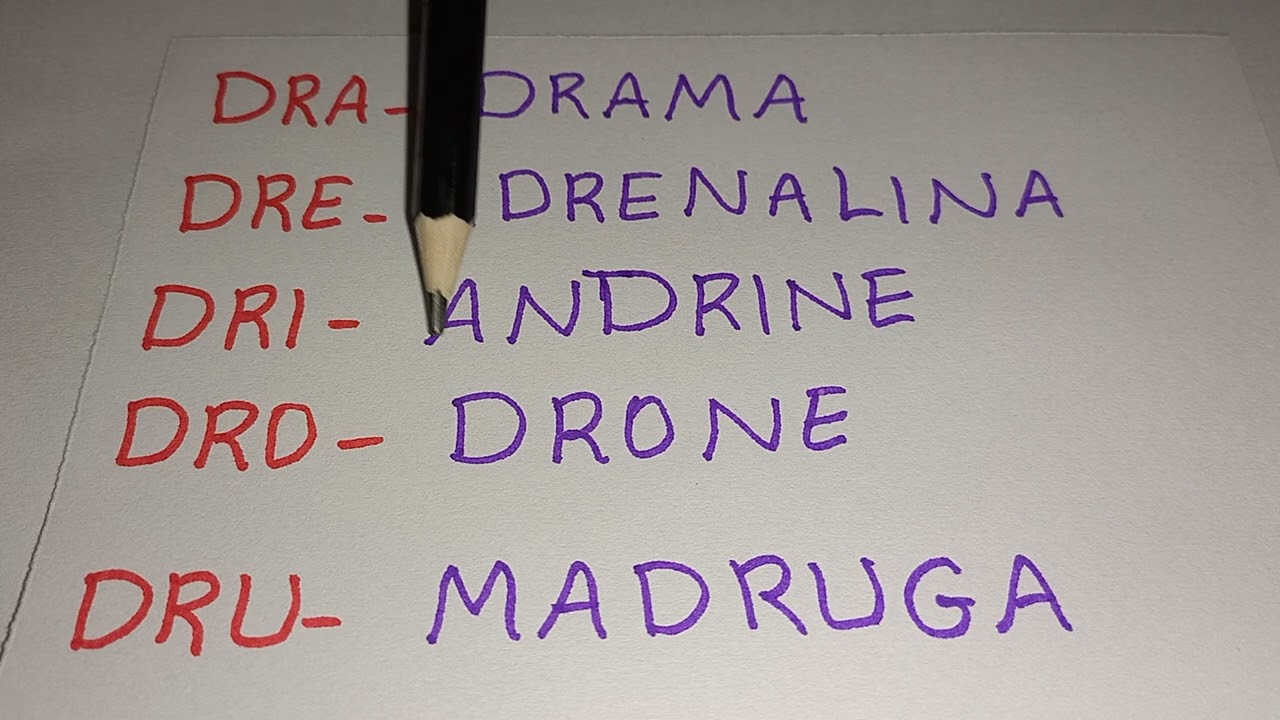 DRA- DRAMA
DRE- DRENALINA
DRI- ANDRINE
DRO- DRONE
DRU- MADRUGA